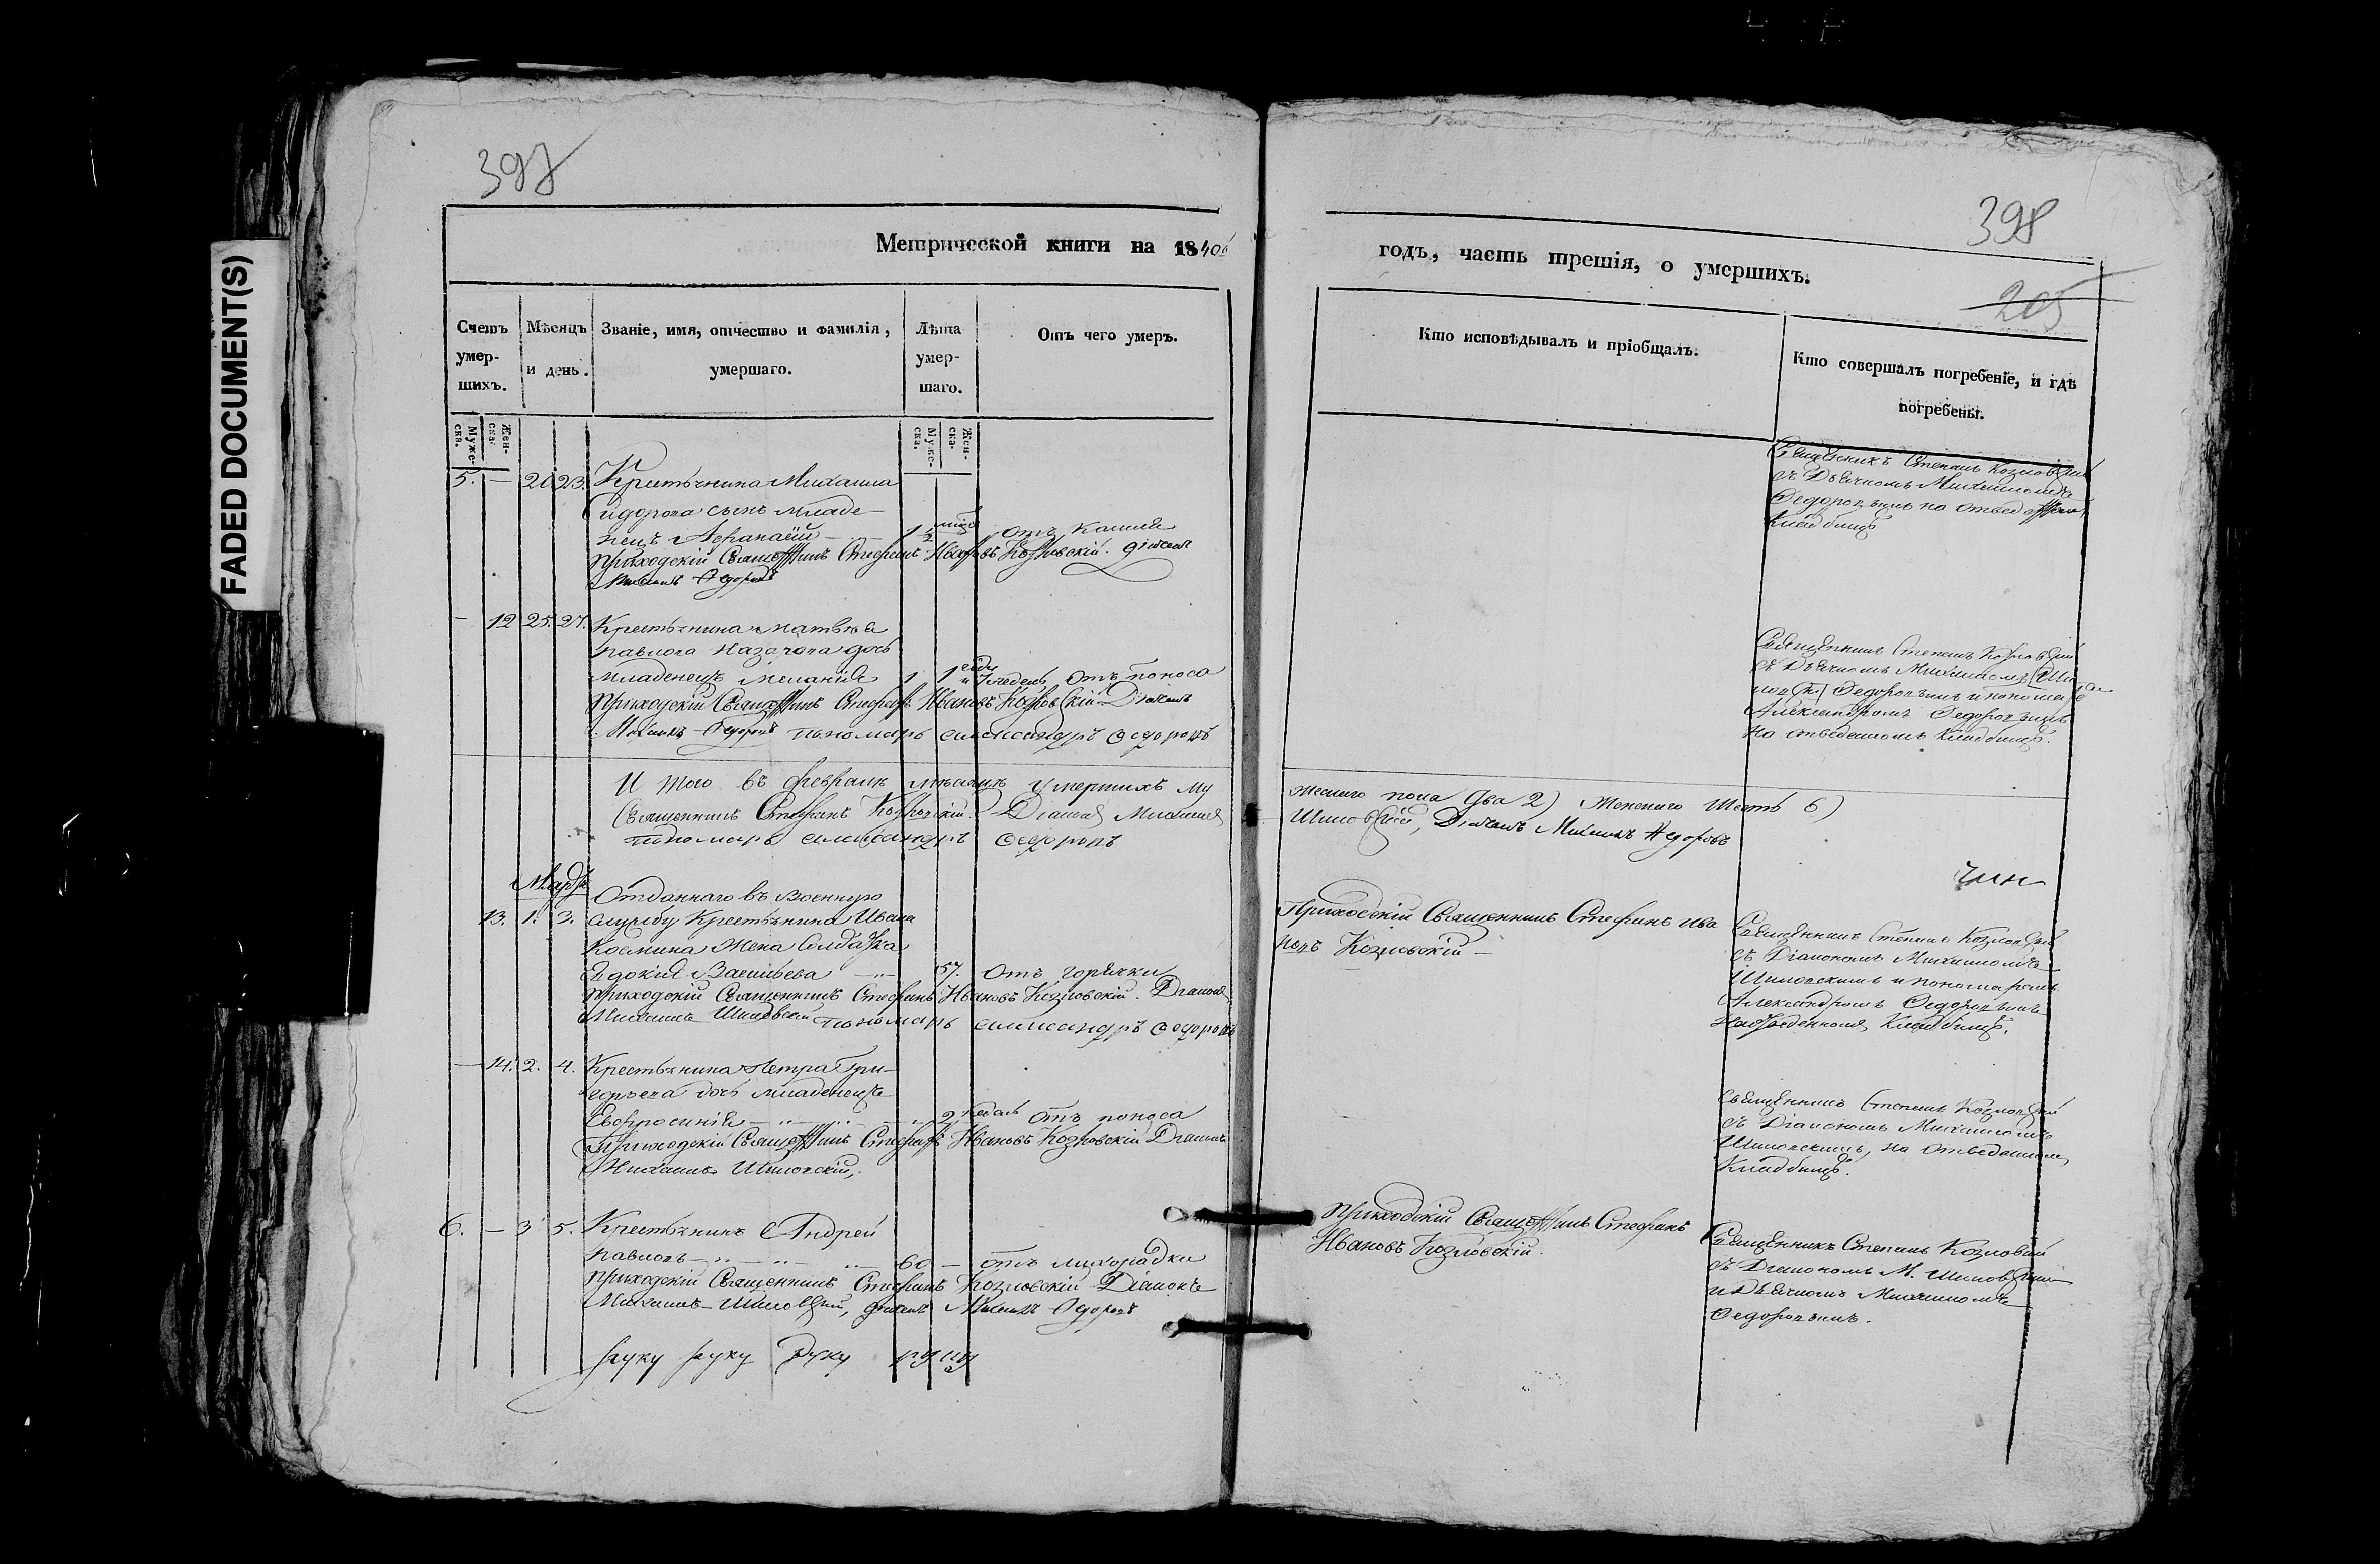 FADED DOCUMENT(S)
397
Метрической книги на 1840й
Счетъ умер-шихъ.
Мѣсяцъ и день.
Званіе, имя, отчество и фамилія, умершаго.
Лѣта умер-шаго.
Отъ чего умеръ.
Муже-ска.
Жен-ска.
Муже-ска.
Жен-ска.
5. — 20 23. Крестьянина Михаила
Сидорова сынъ младе-
нецъ Афанасій — 1 1/2 отъ кашля
Приходскій Священникъ Стефанъ Ивановъ Козловскій. дьячекъ
Михаилъ Федоровъ
— 12 25. 27. Крестьянина Матвѣя
Павлова Назарова дочь
младенецъ Меланія 1 отъ поноса
Приходскій Священникъ Стефанъ Ивановъ Козловскій Дьячекъ
Михаилъ Федоровъ пономарь александръ Федоровъ
И того въ февралѣ мѣсяцѣ умершихъ му
Священникъ Стефанъ Козловскій. Діаконъ Михаилъ
пономарь александръ Федоровъ
Мартъ
Отданнаго въ военную
13. 1. 3. службу Крестьянина Ивана
Космина жена Солдатка
Евдокія Васильева — 57. отъ горячки
Приходскій Священникъ Стефанъ Ивановъ Козловскій. Діаконъ
Михаилъ Шиловскій пономарь александръ Федоровъ
— 14. 2. 4. Крестьянина Петра Гри-
горьева дочь младенецъ
Евфросинія — 2 недѣль отъ поноса
Приходскій Священникъ Стефанъ Ивановъ Козловскій Діаконъ
Михаилъ Шиловскій,
6. — 3 5. Крестьянинъ Андрей
Павловъ — 60 — отъ лихорадки
Приходскій Священникъ Стефанъ Козловскій Діаконъ
Михаилъ Шиловскій, дьячекъ Михаилъ Федоровъ
руку руку руку
398
годъ, часть третія, о умершихъ.
205
Кто исповѣдывалъ и пріобщалъ.
Кто совершалъ погребеніе, и гдѣ погребены.
Священникъ Степанъ Козловскій
съ Дьячкомъ Михаиломъ
Федоровымъ на отведенномъ
кладбищѣ
Священникъ Степанъ Козловскій
съ Дьячкомъ Михаиломъ
Федоровымъ и пономаремъ
Александромъ Федоровымъ
на отведенномъ кладбищѣ.
жескаго пола два 2) женскаго шесть 6)
Шиловскій, Дьячекъ Михаилъ Федоровъ
Приходскій Священникъ Стефанъ Ива
новъ Козловскій —
Священникъ Степанъ Козловскій
съ Діакономъ Михаиломъ
Шиловскимъ и пономаремъ
Александромъ Федоровымъ
на отведенномъ кладбищѣ.
Священникъ Степанъ Козловскій
съ Діакономъ Михаиломъ
Шиловскимъ, на отведенномъ
кладбищѣ.
Приходскій Священникъ Стефанъ
Ивановъ Козловскій.
Священникъ Степанъ Козловскій
съ Діакономъ М. Шиловскимъ
и Дьячкомъ Михаиломъ
Федоровымъ.